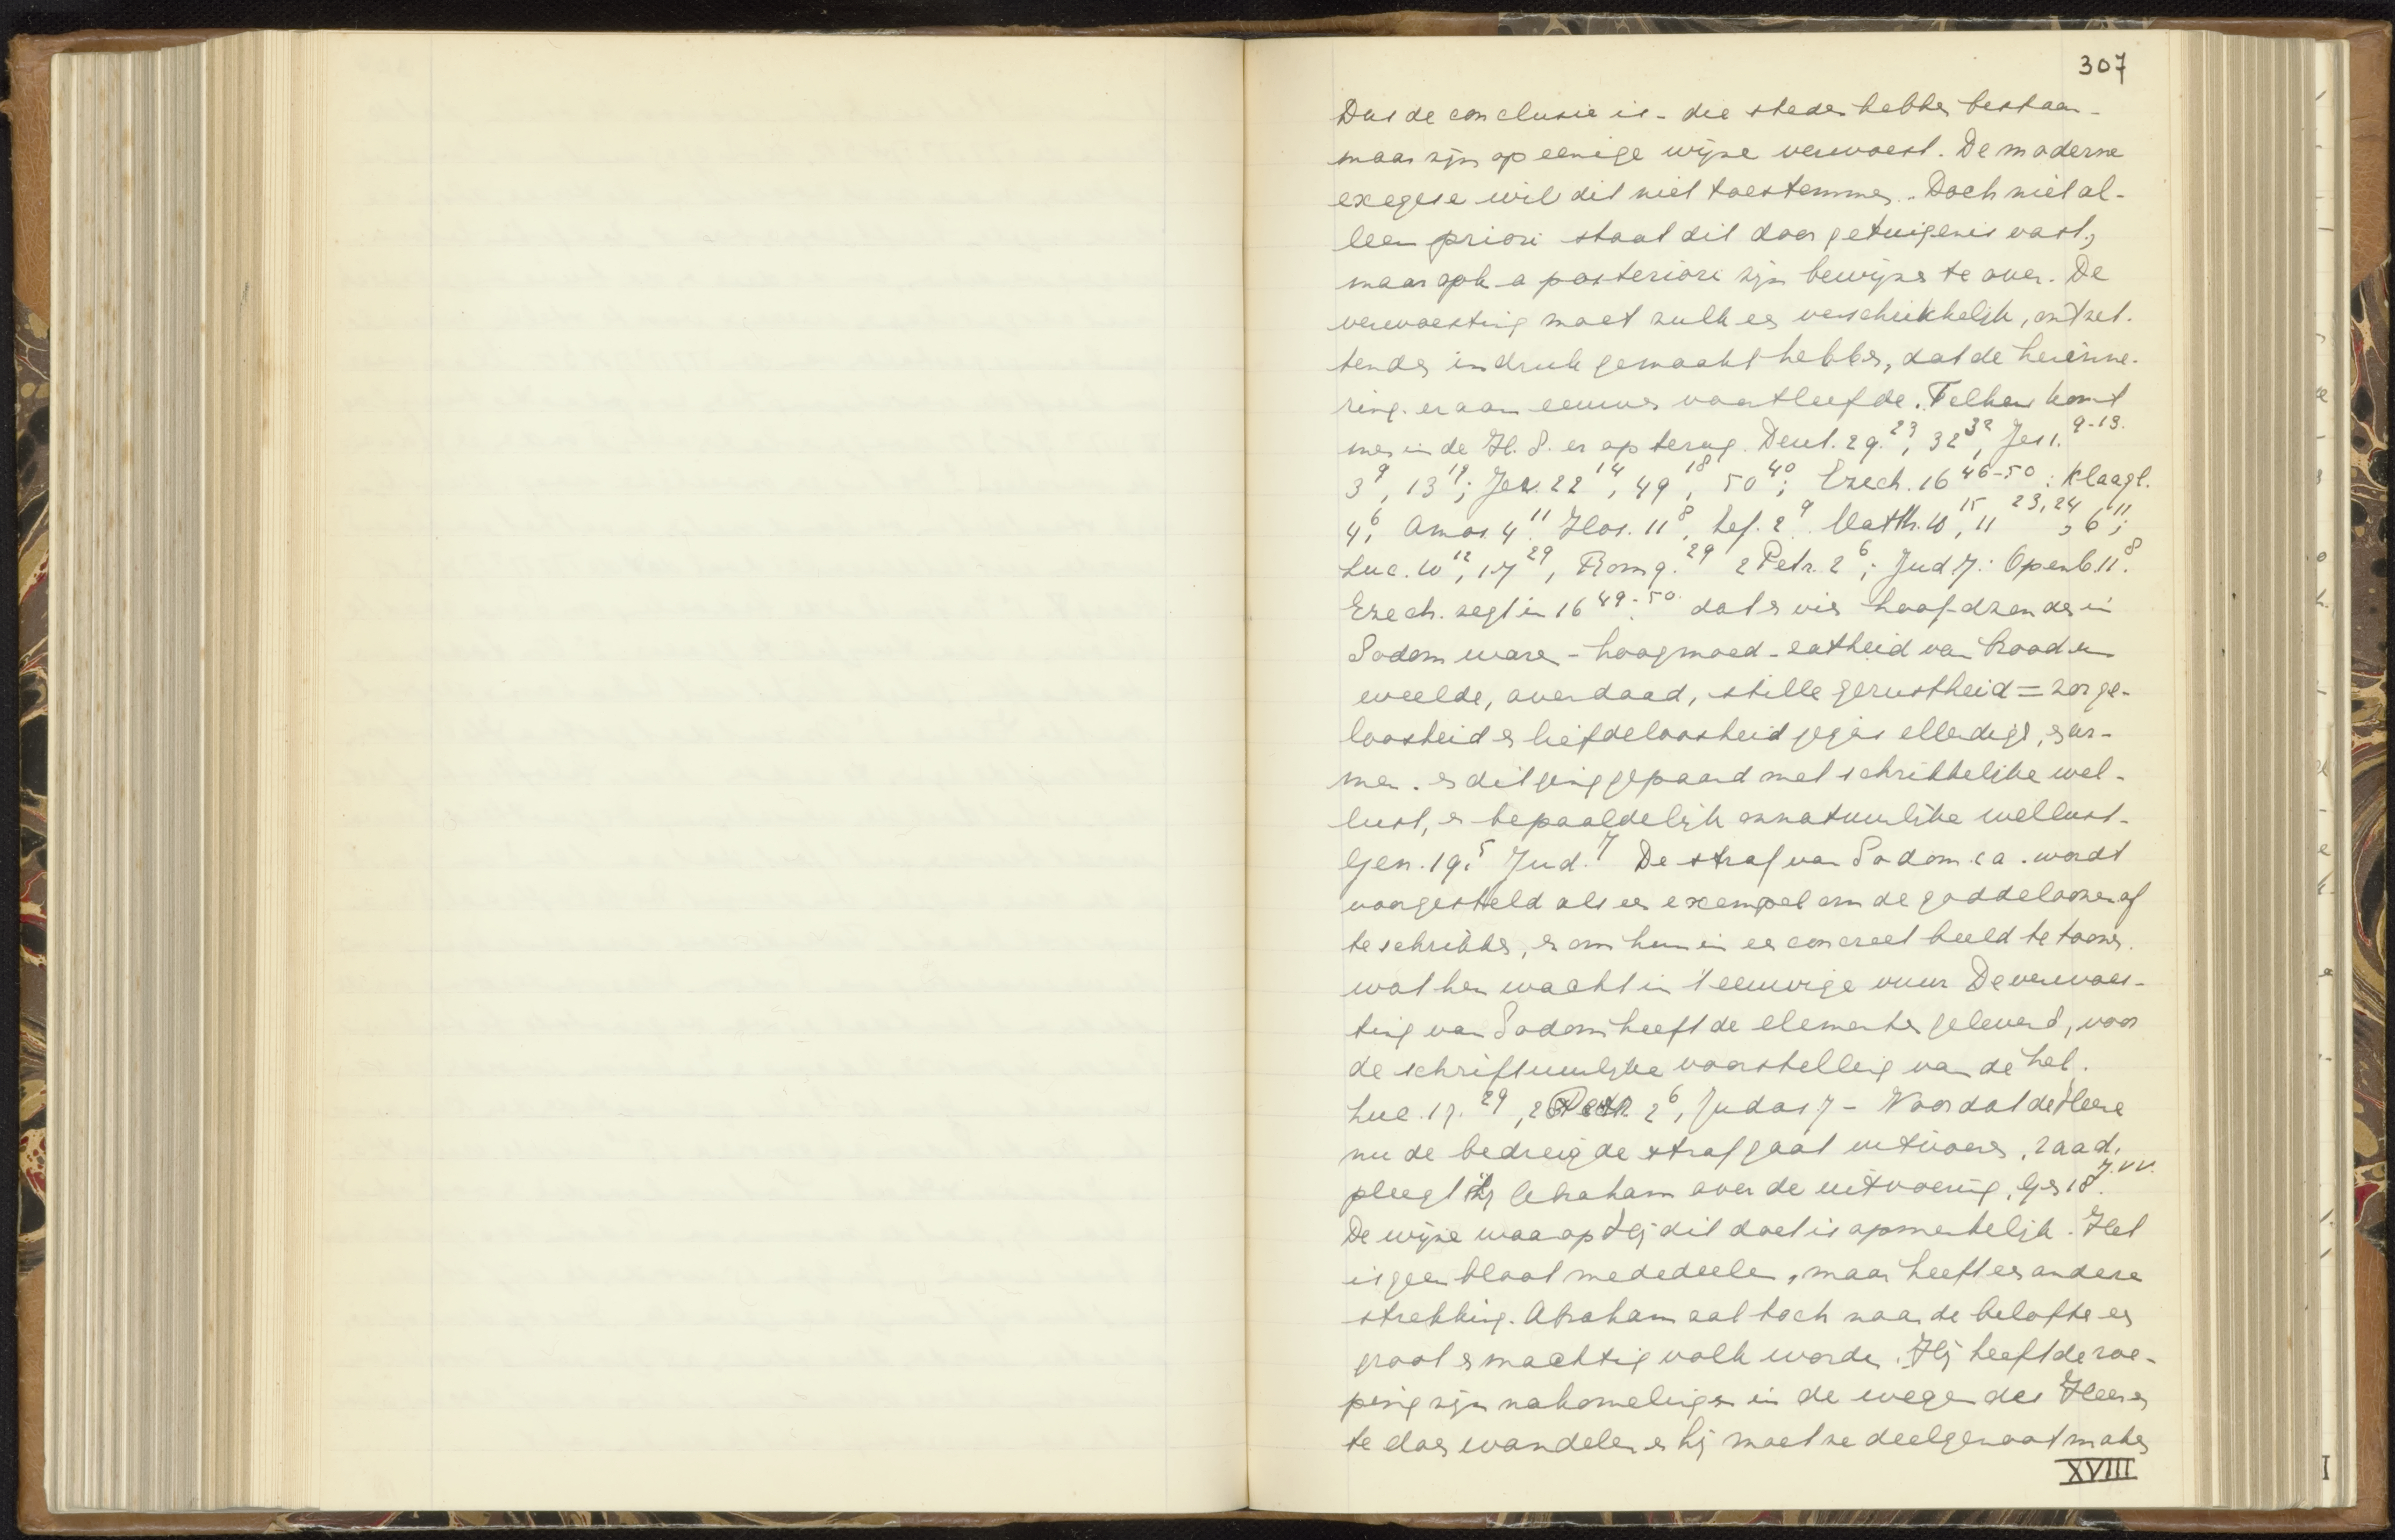 307
Dus de conclusie is - die steden hebben bestaan -
maar zijn op eenige wijze verwoest. De moderne
exegese wil dit niet toestemmen. Doch niet al-
leen priori staat dit door getuigenis vast,
maar ook a posteriori zijn bewijzen te over. De
verwoesting moet zulk een verschrikkelijk, ontzet-
tenden indruk gemaakt hebben, dat de herinne-
ring eraan eeuwen voortleefde. Telkens komt
men in de H. S. er op terug. Deut. 29.²³, 32³², Jes 1.⁹⁻¹³.
3⁹, 13¹⁹; Jer. 22¹⁴, 49¹⁸, 50⁴⁰; Ezech. 16⁴⁶⁻⁵⁰: Klaagl.
4⁶, Amos. 4¹¹ Hos. 11⁸, Zef. 2⁹. Matth. 10¹⁵, 11²³,²⁴, 6¹¹;
Luc. 10¹², 17²⁹, Rom 9.²⁹ 2 Petr. 2⁶; Jud 7: Openb. 11.⁸
Ezech. zegt in 16⁴⁹⁻⁵⁰. dat er vier hoofdzonden in
Sodom waren - hoogmoed - zatheid van brood en
weelde, overdaad, stille gerustheid = zorge-
loosheid en liefdeloosheid jegens ellendige, en ar-
men. en dit ging gepaard met schrikkelijke wel-
lust, en bepaaldelijk onnatuurlijke wellust -
Gen. 19.⁵ Jud.⁷ De straf van Sodom c a. wordt
voorgesteld als een exempel om de goddeloozen af
te schrikken, en om hun in een concreet beeld te toonen.
wat hen wacht in 't eeuwige vuur De verwoes-
ting van Sodom heeft de elementen geleverd, voor
de schriftuurlijke voorstelling van de hel.
Luc. 17.²⁹, 2 Petr 2⁶, Judas 7 - Voordat de Heere
nu de bedreigde straf gaat uitvoeren, raad,
pleegt Hij Abraham over de uitvoering, Gen 18⁷·ᵛᵛ.
De wijze waarop Hij dit doet is opmerkelijk. Het
is geen bloot mededeelen, maar heeft een andere
strekking. Abraham zal toch naar de belofte een
groot en machtig volk worden. Hij heeft de roe-
ping zijn nakomelingen in de wegen des Heeren
te doen wandelen en hij moet ze deelgenoot maken
XVIII